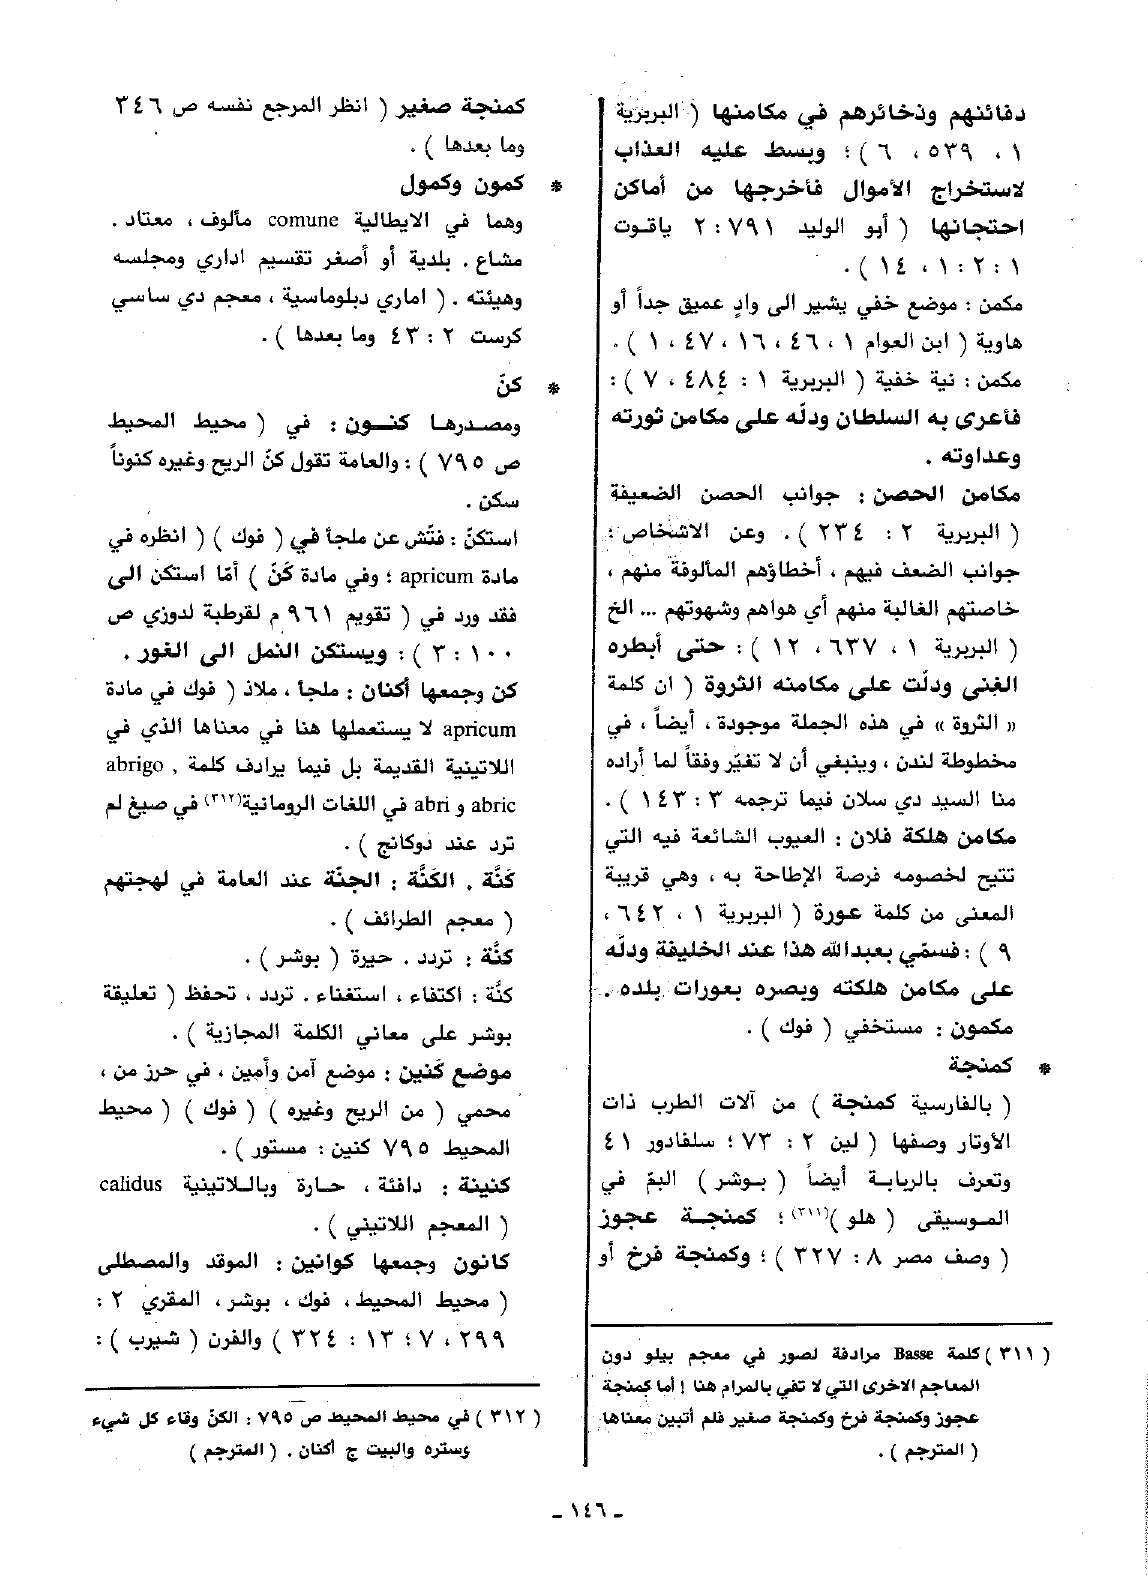 دفائنهم وذخائرهم في مكامنها ( البربرية
١ ، ٥٣٩ ، ٦ ) ؛ وبسط عليه العذاب
لاستخراج الأموال فأخرجها من أماكن
احتجانها ( أبو الوليد ٧٩١ : ٢ ياقوت
١ : ٢ : ١ ، ١٤ ) .
مكمن : موضع خفي يشير الى وادٍ عميق جداً أو
هاوية ( ابن العوام ١ ، ٤٦ ، ١٦ ، ٤٧ ، ١ ) .
مكمن : نية خفية ( البربرية ١ : ٤٨٤ ، ٧ ) :
فأعرى به السلطان ودلّه على مكامن ثورته
وعداوته .
مكامن الحصن : جوانب الحصن الضعيفة
( البربرية ٢ : ٢٣٤ ) . وعن الاشخاص :
جوانب الضعف فيهم ، أخطاؤهم المألوفة منهم ،
خاصتهم الغالبة منهم أي هواهم وشهوتهم ... الخ
( البربرية ١ ، ٦٣٧ ، ١٢ ) : حتى أبطره
الغنى ودلّت على مكامنه الثروة ( ان كلمة
« الثروة » في هذه الجملة موجودة ، أيضاً ، في
مخطوطة لندن ، وينبغي أن لا تغيّر وفقاً لما أراده
منا السيد دي سلان فيما ترجمه ٣ : ١٤٣ ) .
مكامن هلكة فلان : العيوب الشائعة فيه التي
تتيح لخصومه فرصة الإطاحة به ، وهي قريبة
المعنى من كلمة عورة ( البربرية ١ ، ٦٤٢ ،
٩ ) : فسمّي بعبدالله هذا عند الخليفة ودلّه
على مكامن هلكته وبصره بعورات بلده .
مكمون : مستخفي ( فوك ) .
* كمنجة
( بالفارسية كمنجة ) من آلات الطرب ذات
الأوتار وصفها ( لين ٢ : ٧٣ ؛ سلفادور ٤١
وتعرف بالربابة أيضاً ( بوشر ) البمّ في
الموسيقى ( هلو )(٣١١) ؛ كمنجة عجوز
( وصف مصر ٨ : ٣٢٧ ) ؛ وكمنجة فرخ أو
( ٣١١ ) كلمة Basse مرادفة لصور في معجم بيلو دون
المعاجم الاخرى التي لا تفي بالمرام هنا ! أما كمنجة
عجوز وكمنجة فرخ وكمنجة صغير فلم أتبين معناها
( المترجم ) .
كمنجة صغير ( انظر المرجع نفسه ص ٣٤٦
وما بعدها ) .
* كمون وكمول
وهما في الايطالية comune مألوف ، معتاد .
مشاع . بلدية أو أصغر تقسيم اداري ومجلسه
وهيئته . ( اماري دبلوماسية ، معجم دي ساسي
كرست ٢ : ٤٣ وما بعدها ) .
* كنّ
ومصدرها كنون : في ( محيط المحيط
ص ٧٩٥ ) : والعامة تقول كنّ الريح وغيره كنوناً
سكن .
استكنّ : فتّش عن ملجأ في ( فوك ) ( انظره في
مادة apricum ؛ وفي مادة كَنّ ) أمّا استكن الى
فقد ورد في ( تقويم ٩٦١ م لقرطبة لدوزي ص
١٠٠ : ٣ ) : ويستكن النمل الى الغور .
كن وجمعها أكنان : ملجأ ، ملاذ ( فوك في مادة
apricum لا يستعملها هنا في معناها الذي في
اللاتينية القديمة بل فيما يرادف كلمة abrigo ,
abric و abri في اللغات الرومانية(٣١٢) في صيغ لم
ترد عند دوكانج ) .
كَنَّة . الكَنَّة : الجنّة عند العامة في لهجتهم
( معجم الطرائف ) .
كنَّة : تردد . حيرة ( بوشر ) .
كنَّة : اكتفاء ، استغناء . تردد ، تحفظ ( تعليقة
بوشر على معاني الكلمة المجازية ) .
موضع كَنين : موضع آمن وأمين ، في حرز من ،
محمي ( من الريح وغيره ) ( فوك ) ( محيط
المحيط ٧٩٥ كنين : مستور ) .
كنينة : دافئة ، حارة وباللاتينية calidus
( المعجم اللاتيني ) .
كانون وجمعها كوانين : الموقد والمصطلى
( محيط المحيط ، فوك ، بوشر ، المقري ٢ :
٢٩٩ ، ٧ ؛ ١٣ : ٣٢٤ ) والفرن ( شيرب ) :
( ٣١٢ ) في محيط المحيط ص ٧٩٥ : الكنّ وقاء كل شيء
وستره والبيت ج أكنان . ( المترجم )
ـ ١٤٦ ـ